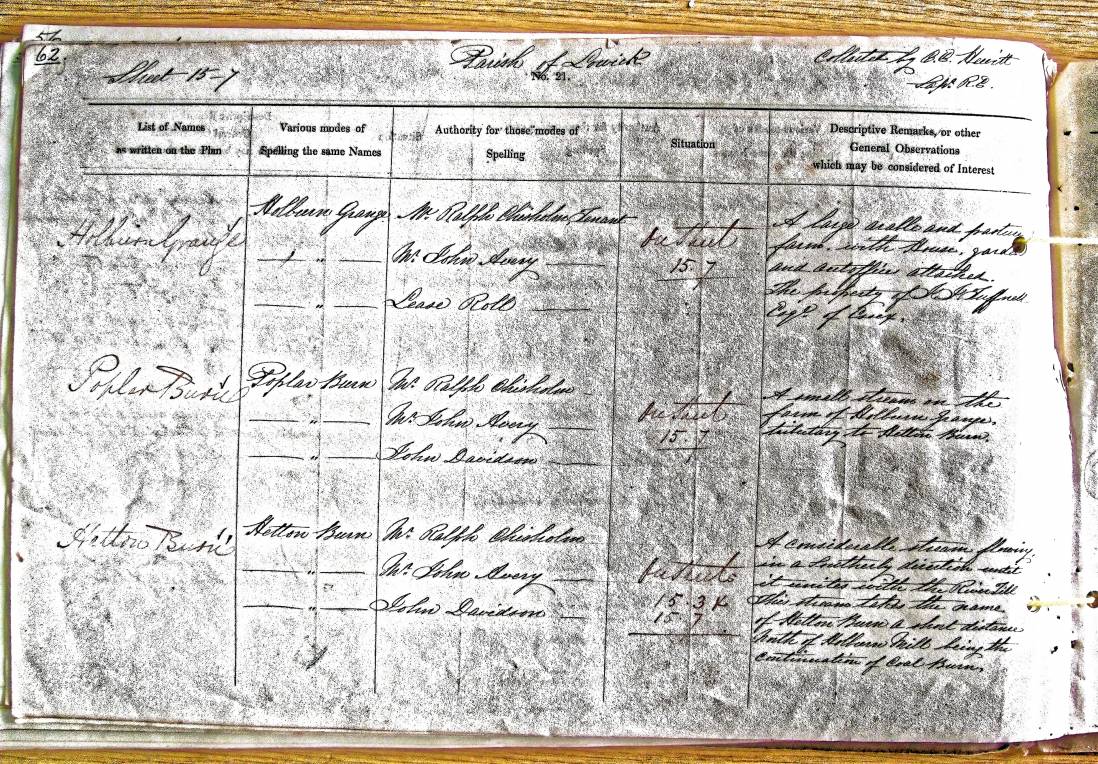 56
62.
Sheet 15-7
Parish of Lowick
No. 21.
Collected by
Sapr. R.E.
List of Names
as written on the Plan
Various modes of
Spelling the same Names
Authority for those modes of
Spelling
Situation
Descriptive Remarks, or other
General Observations
which may be considered of Interest
Holburn Grange
Holburn Grange
Mr. Ralph Chisholm, Tenant
— " —
Mr. John Avery
— " —
Lease Roll
15.7
A large arable and pasture
farm with House, garden
and outoffice attached.
The property of J. J. Tuffnell
Esqr. of Essex.
Poplar Burn
Poplar Burn
Mr. Ralph Chisholm
— " —
Mr. John Avery
— " —
John Davidson
15.7
A small stream on the
farm of Holburn Grange,
tributary to Hetton Burn.
Hetton Burn
Hetton Burn
Mr. Ralph Chisholm
— " —
Mr. John Avery
— " —
John Davidson
15.3
15 7
A considerable stream flowing
in a Southerly direction until
it unites with the River Till
This stream takes the name
of Hetton Burn a short distance
North of Holburn Mill being the
continuation of Coal Burn.